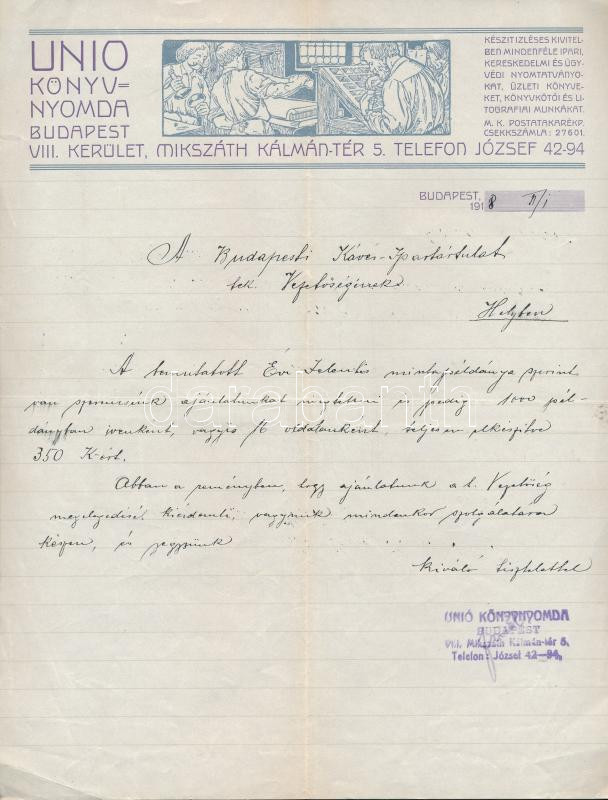 UNIO
KÖNYV=
NYOMDA
BUDAPEST
VIII. KERÜLET, MIKSZÁTH KÁLMÁN-TÉR 5. TELEFON JÓZSEF 42-94
KÉSZIT IZLÉSES KIVITEL-
BEN MINDENFÉLE IPARI,
KERESKEDELMI ÉS ÜGY-
VÉDI NYOMTATVÁNYO-
KAT, ÜZLETI KÖNYVE-
KET, KÖNYVKÖTŐI ÉS LI-
TOGRAFIAI MUNKÁKAT.
M. K. POSTATAKARÉKP.
CSEKKSZÁMLA: 27601.
BUDAPEST,
1918 II/1
A Budapesti Kávés-Ipartársulat
tek. Vezetőségének
Helyben
A bemutatott Évi Jelentés mintapéldánya szerint
van szerencsénk ajánlatunkat megtenni és pedig 1000 pél-
dányban ivenként, vagyis 16 oldalanként, teljesen elkészítve
350 K-ért.
Abban a reményben, hogy ajánlatunk a t. Vezetőség
megelégedését kiérdemli, vagyunk mindenkor szolgálatára
készen, és jegyzünk
kiváló tisztelettel
UNIÓ KÖNYVNYOMDA
BUDAPEST
VIII. Mikszáth Kálmán-tér 5.
Telefon: József 42-94.
darabanth